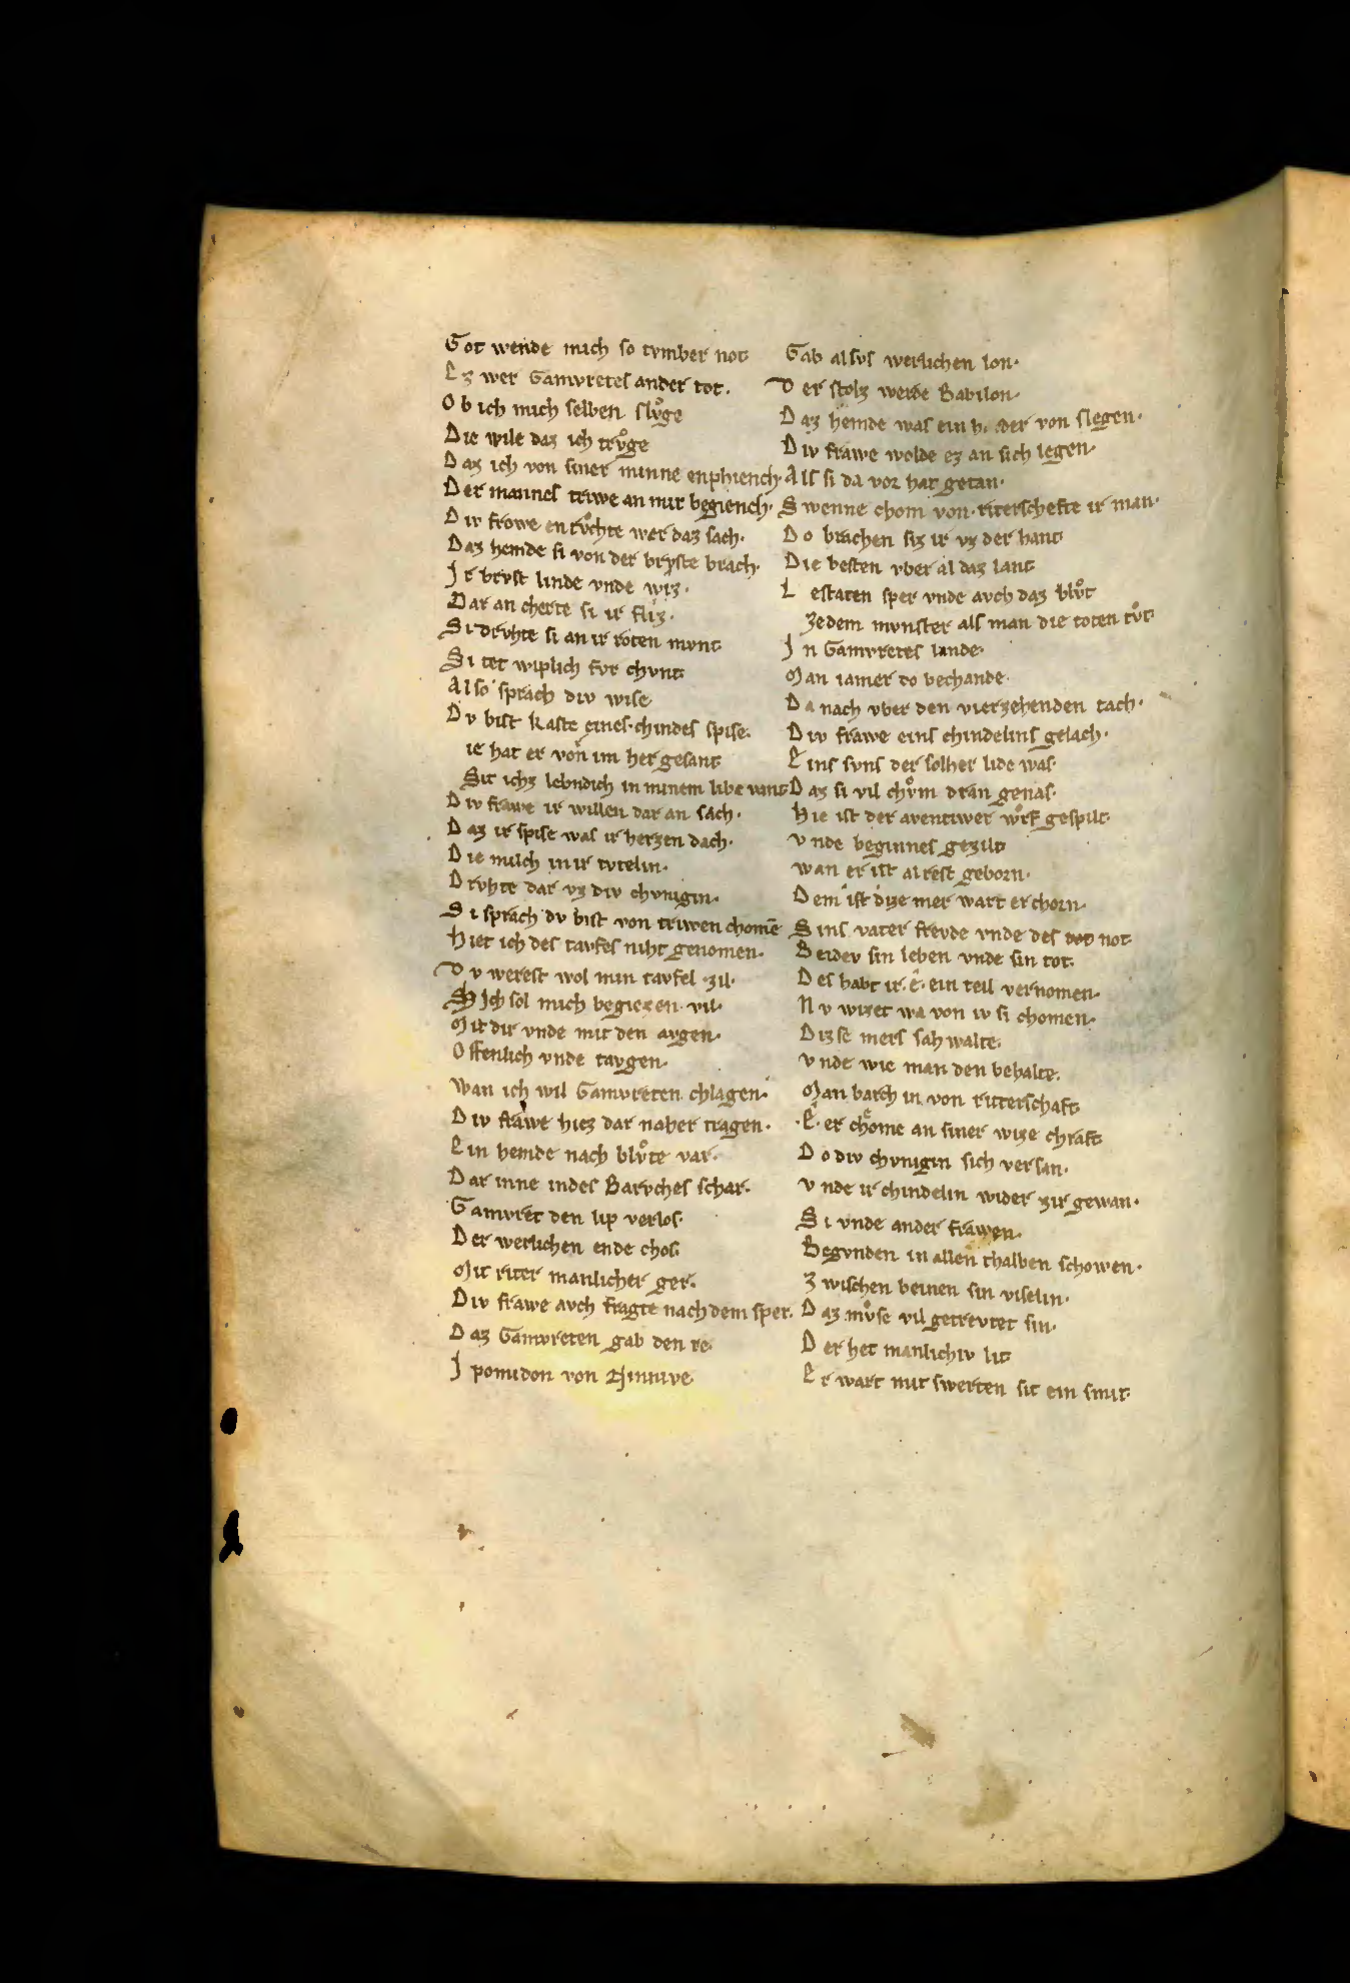 Got wende mich so tvmber not
Ez wer Gamvretes ander tot.
Ob ich mich selben slvͦge
Die wile daz ich trvͦge
Daz ich von siner minne enphiench.
Der mannes triwe an mir begiench.
Div frowe en rvͦchte wer daz sach.
Daz hemde si von der brvste brach.
Ir brvst linde vnde wiz.
Dar an cherte si ir fliz.
Si drvhte si an ir roten mvnt
Si tet wiplich fvr chvnt
Also sprach div wise
Dv bist kaste eines chindes spise.
ie hat er von im her gesant
Sit ichz lebndich in minem libe vant
Div frawe ir willen dar an sach.
Daz ir spise was ir herzen dach.
Die milch in ir tvtelin.
Drvhte dar vz div chvnigin.
Si sprach dv bist von triwen chomē
Hiet ich des tavfes niht genomen.
Dv werest wol min tavfes zil.
Ich sol mich begiezen vil.
Mit dir vnde mit den avgen.
Offenlich vnde tavgen.
Wan ich wil Gamvreten chlagen.
Div frawe hiez dar naher tragen.
Ein hemde nach blvͦte var.
Dar inne indes Barvches schar.
Gamvret den lip verlos.
Der werlichen ende chos
Mit riter manlicher ger.
Div frawe avch fragte nach dem sper.
Daz Gamvreten gab den re
Ipomidon von Ninive
Gab alsvs werlichen lon.
Der stolz werde Babilon.
Daz hemde was ein von slegen.
Div frawe wolde ez an sich legen.
Als si da vor hat getan.
Swenne chom von riterschefte ir man.
Do brachen siz ir vz der hant
Die besten vber al daz lant
Lestaten sper vnde avch daz blvͦt
zedem mvnster als man die toten tvͦt
In Gamvretes lande
Man iamer do bechande.
Da nach vber den vierzehenden tach.
Div frawe eins chindelins gelach.
Eins svns der solher lide was.
Daz si vil chvͦm dran genas.
Hie ist der aventiwer wrf gespilt.
vnde beginnes gezilt
wan er ist alrest geborn.
Dem ist dize mer wart erchorn.
Sins vater frevde vnde des not
Beidev sin leben vnde sin tot.
Des habt ir. e. ein teil vernomen.
Nv wizet wa von iv si chomen.
Dizse mers sah walte.
vnde wie man den behalte.
Man barch in von ritterschaft
.E. er chome an siner wize chraft
Do div chvnigin sich versan.
vnde ir chindelin wider zir gewan.
Si vnde ander frawen.
Begvnden in allen thalben schowen.
Zwischen beinen sin viselin.
Daz mvͦse vil getrevtet sin.
Der het manlichiv lit
Er wart mit swerten sit ein smit.